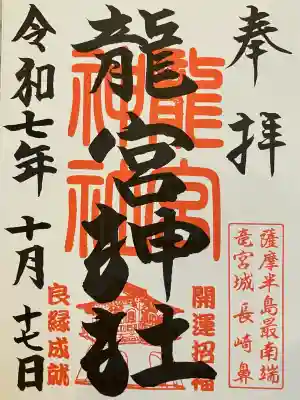 奉拝
龍宮神社
龍宮神社
薩摩半島最南端
竜宮城 長崎鼻
開運招福
良縁成就
令和七年 十月 十七日